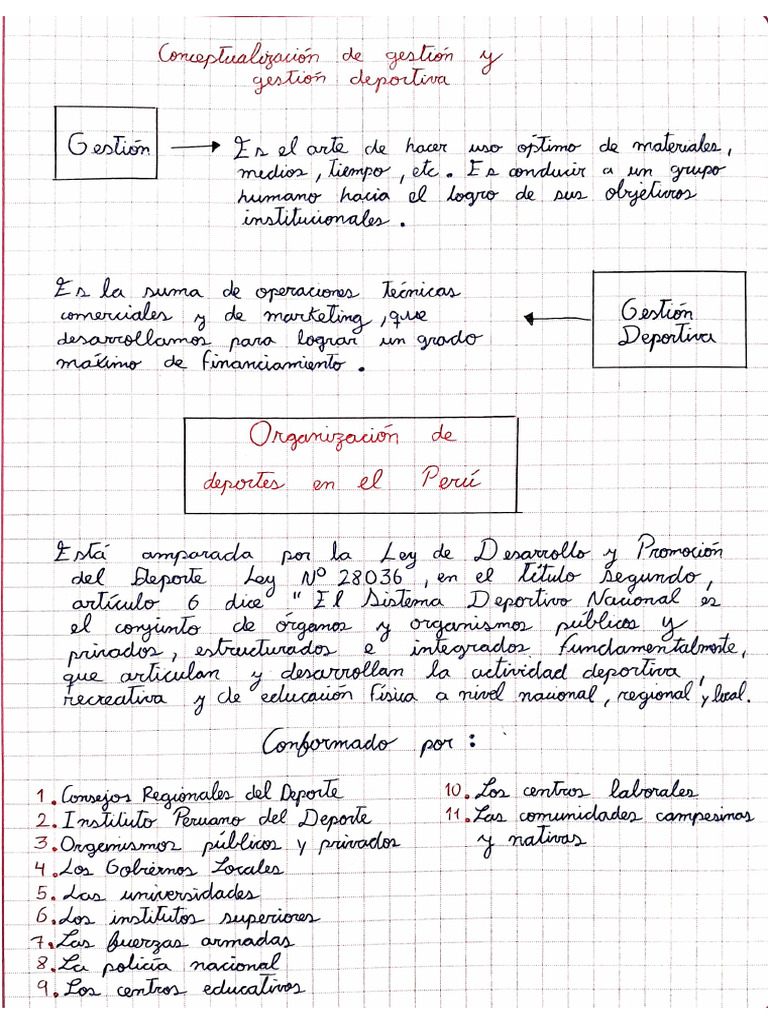 Conceptualización de gestión y
gestión deportiva
Gestión
Es el arte de hacer uso óptimo de materiales,
medios, tiempo, etc. Es conducir a un grupo
humano hacia el logro de sus objetivos
institucionales.
Es la suma de operaciones técnicas
comerciales y de marketing, que
desarrollamos para lograr un grado
máximo de financiamiento.
Gestión
Deportiva
Organización de
deportes en el Perú
Está amparada por la Ley de Desarrollo y Promoción
del Deporte Ley Nº 28036, en el título segundo,
artículo 6 dice " El Sistema Deportivo Nacional es
el conjunto de órganos y organismos públicos y
privados, estructurados e integrados fundamentalmente,
que articulan y desarrollan la actividad deportiva,
recreativa y de educación física a nivel nacional, regional y local.
Conformado por:
1. Consejos Regionales del Deporte
2. Instituto Peruano del Deporte
3. Organismos públicos y privados
4. Los Gobiernos Locales
5. Las universidades
6. Los institutos superiores
7. Las fuerzas armadas
8. La policía nacional
9. Los centros educativos
10. Los centros laborales
11. Las comunidades campesinas
y nativas